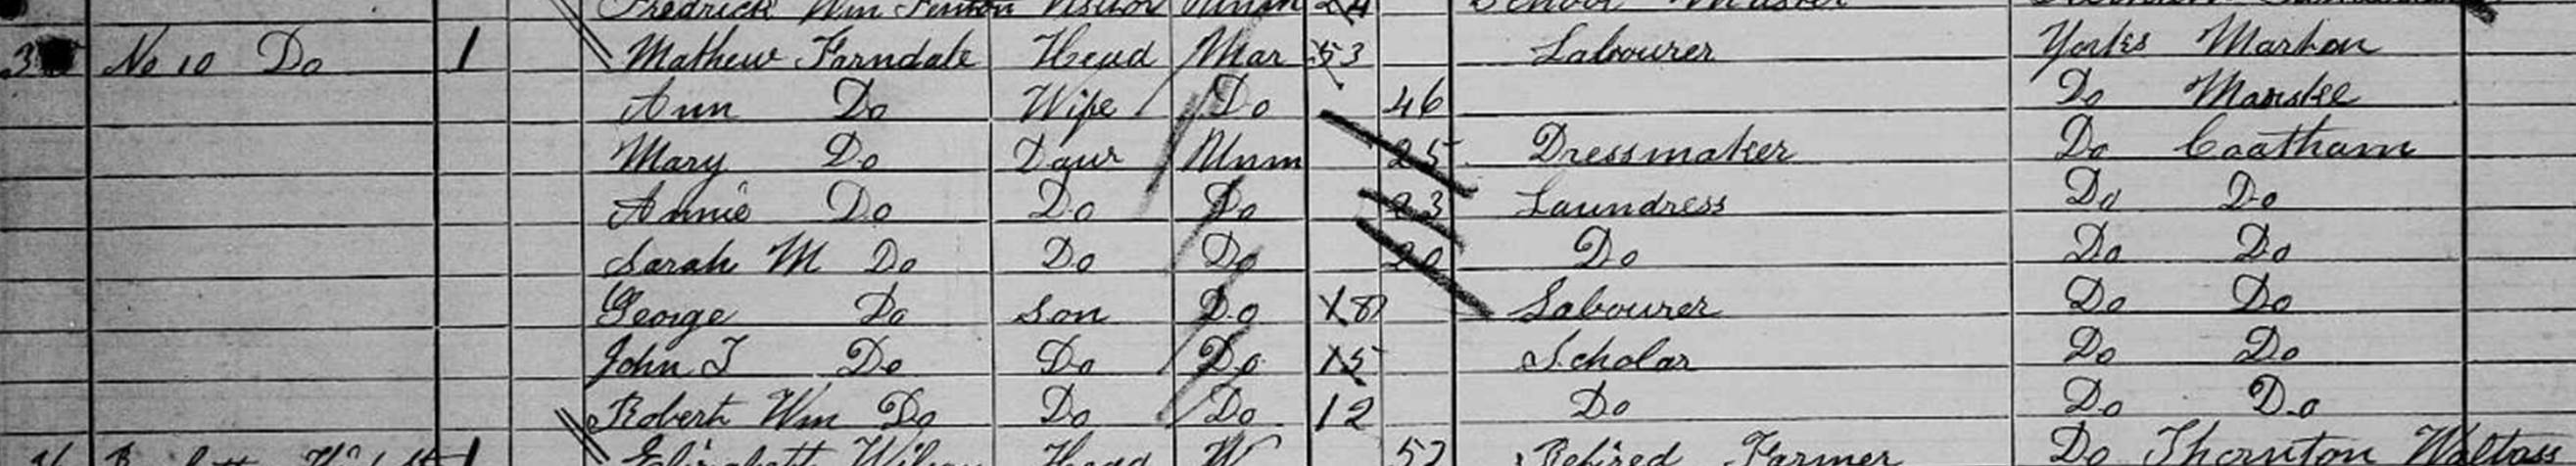 Fredrick Wm Visitor Unm 24 School Master
No 10 Do 1 Mathew Farndale Head Mar 53 Labourer Yorks Marton
Ann Do Wife Do 46 Do Marske
Mary Do Daur Unm 25 Dressmaker Do Coatham
Annie Do Do Do 23 Laundress Do Do
Sarah M Do Do Do 20 Do Do Do
George Do Son Do 18 Labourer Do Do
John T Do Do Do 15 Scholar Do Do
Robert Wm Do Do Do 12 Do Do Do
1 Elizabeth Wilson Head W 57 Retired Farmer Do Thornton